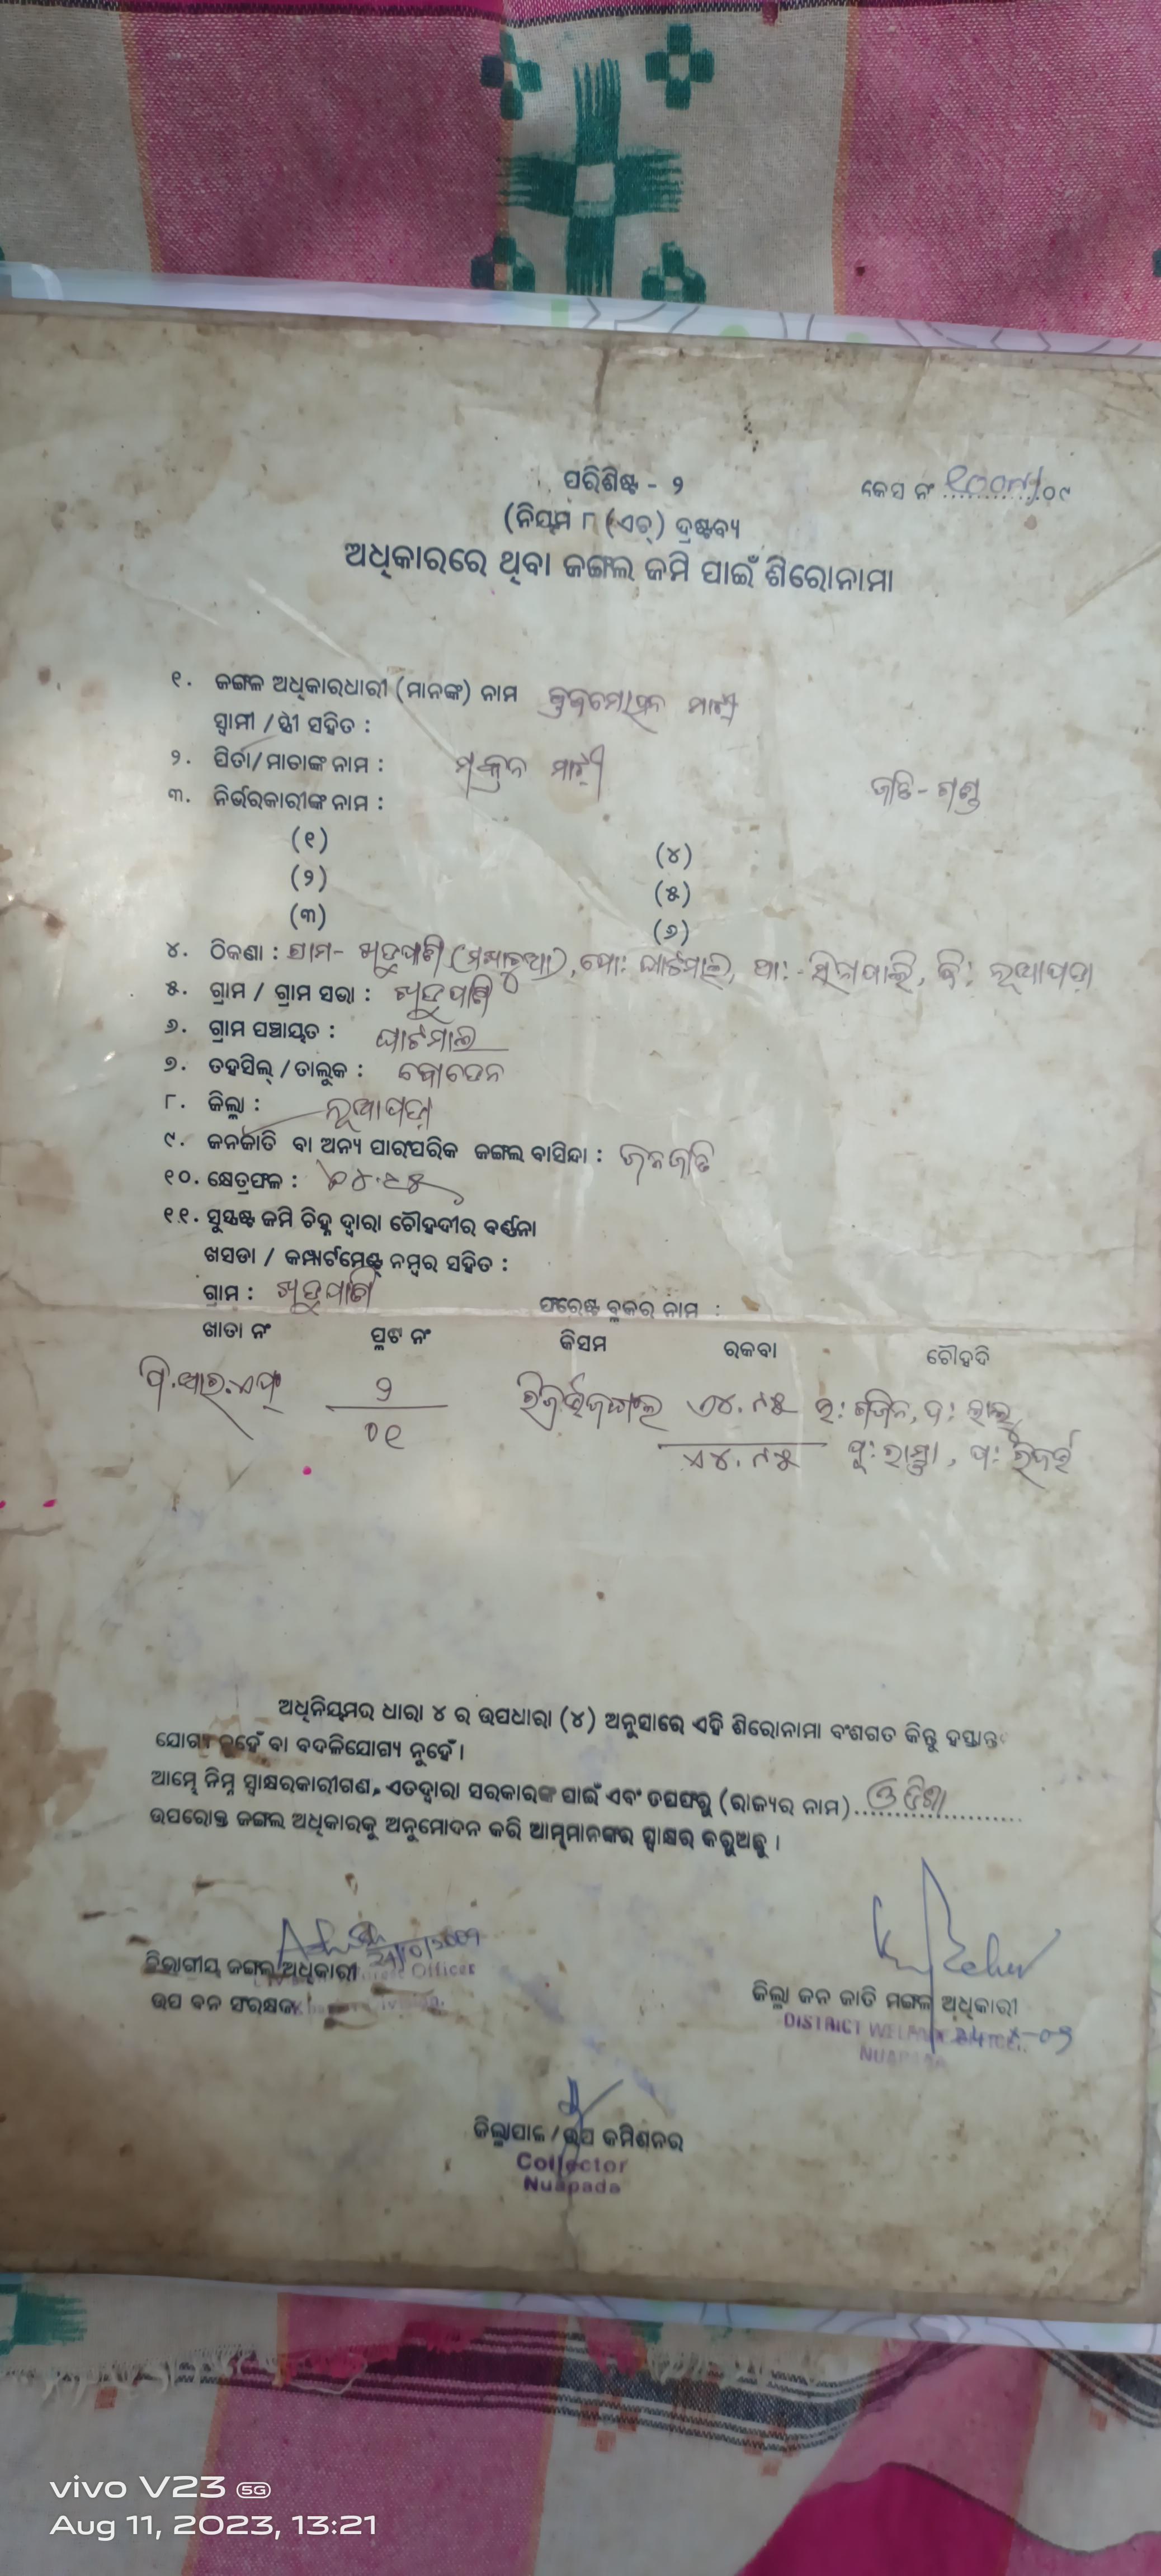 ପରିଶିଷ୍ଟ - ୨
କେସ ନଂ ............୦୯
(ନିୟମ ୮ (ଏଚ୍) ଦ୍ରଷ୍ଟବ୍ୟ
ଅଧିକାରରେ ଥିବା ଜଙ୍ଗଲ ଜମି ପାଇଁ ଶିରୋନାମା
୧. ଜଙ୍ଗଳ ଅଧିକାରଧାରୀ (ମାନଙ୍କ) ନାମ ବ୍ରଜମୋହନ ମାଝୀ
ସ୍ୱାମୀ / ସ୍ତ୍ରୀ ସହିତ :
୨. ପିତା/ମାତାଙ୍କ ନାମ : ମାଝୀ
ଜାତି - ଗଣ୍ଡ
୩. ନିର୍ଭରକାରୀଙ୍କ ନାମ :
(୧) (୪)
(୨) (୫)
(୩) (୬)
୪. ଠିକଣା : ଗ୍ରାମ- ପୋ: ଘାଟମାଲ, ଥା: - ସିନାପାଲି, ଜି: ନୂଆପଡ଼ା
୫. ଗ୍ରାମ / ଗ୍ରାମ ସଭା :
୬. ଗ୍ରାମ ପଞ୍ଚାୟତ : ଘାଟମାଲ
୭. ତହସିଲ୍ / ତାଲୁକ : ବୋଡେନ
୮. ଜିଲ୍ଲା : ନୂଆପଡ଼ା
୯. ଜନଜାତି ବା ଅନ୍ୟ ପାରଂପରିକ ଜଙ୍ଗଲ ବାସିନ୍ଦା : ଜନଜାତି
୧୦. କ୍ଷେତ୍ରଫଳ :
୧୧. ସୁସ୍ପଷ୍ଟ ଜମି ଚିହ୍ନ ଦ୍ୱାରା ଚୌହଦୀର ବର୍ଣ୍ଣନା
ଖସଡା / କମ୍ପାର୍ଟମେଣ୍ଟ ନମ୍ବର ସହିତ :
ଗ୍ରାମ :
ଫରେଷ୍ଟ ବ୍ଲକର ନାମ :
ଖାତା ନଂ ପ୍ଲଟ ନଂ କିସମ ରକବା ଚୌହଦି
ପି.ଆର.ଏଫ୍ ୨ ରିଜର୍ଭ ଜଙ୍ଗଲ ଏ୪.୮୫
୦୧ ଏ୪.୮୫ ପୂ: ରାସ୍ତା, ପ: ରିଜର୍ଭ
ଅଧିନିୟମର ଧାରା ୪ ର ଉପଧାରା (୪) ଅନୁସାରେ ଏହି ଶିରୋନାମା ବଂଶଗତ କିନ୍ତୁ ହସ୍ତାନ୍ତ
ଯୋଗ୍ୟ ନୁହେଁ ବା ବଦଳିଯୋଗ୍ୟ ନୁହେଁ ।
ଆମ୍ଭେ ନିମ୍ନ ସ୍ୱାକ୍ଷରକାରୀଗଣ, ଏତଦ୍ୱାରା ସରକାରଙ୍କ ପାଇଁ ଏବଂ ତରଫରୁ (ରାଜ୍ୟର ନାମ) ଓଡିଶା
ଉପରୋକ୍ତ ଜଙ୍ଗଲ ଅଧିକାରକୁ ଅନୁମୋଦନ କରି ଆମ୍ଭମାନଙ୍କର ସ୍ୱାକ୍ଷର କରୁଅଛୁ ।
ବିଭାଗୀୟ ଜଙ୍ଗଲ ଅଧିକାରୀ
Officer
ଉପ ବନ ସଂରକ୍ଷକ
ଜିଲ୍ଲା ଜନ ଜାତି ମଙ୍ଗଳ ଅଧିକାରୀ
DISTRICT WELFARE OFFICER
NUAPADA
ଜିଲ୍ଲାପାଳ / ଉପ କମିଶନର
Collector
Nuapada
vivo V23 5G
Aug 11, 2023, 13:21